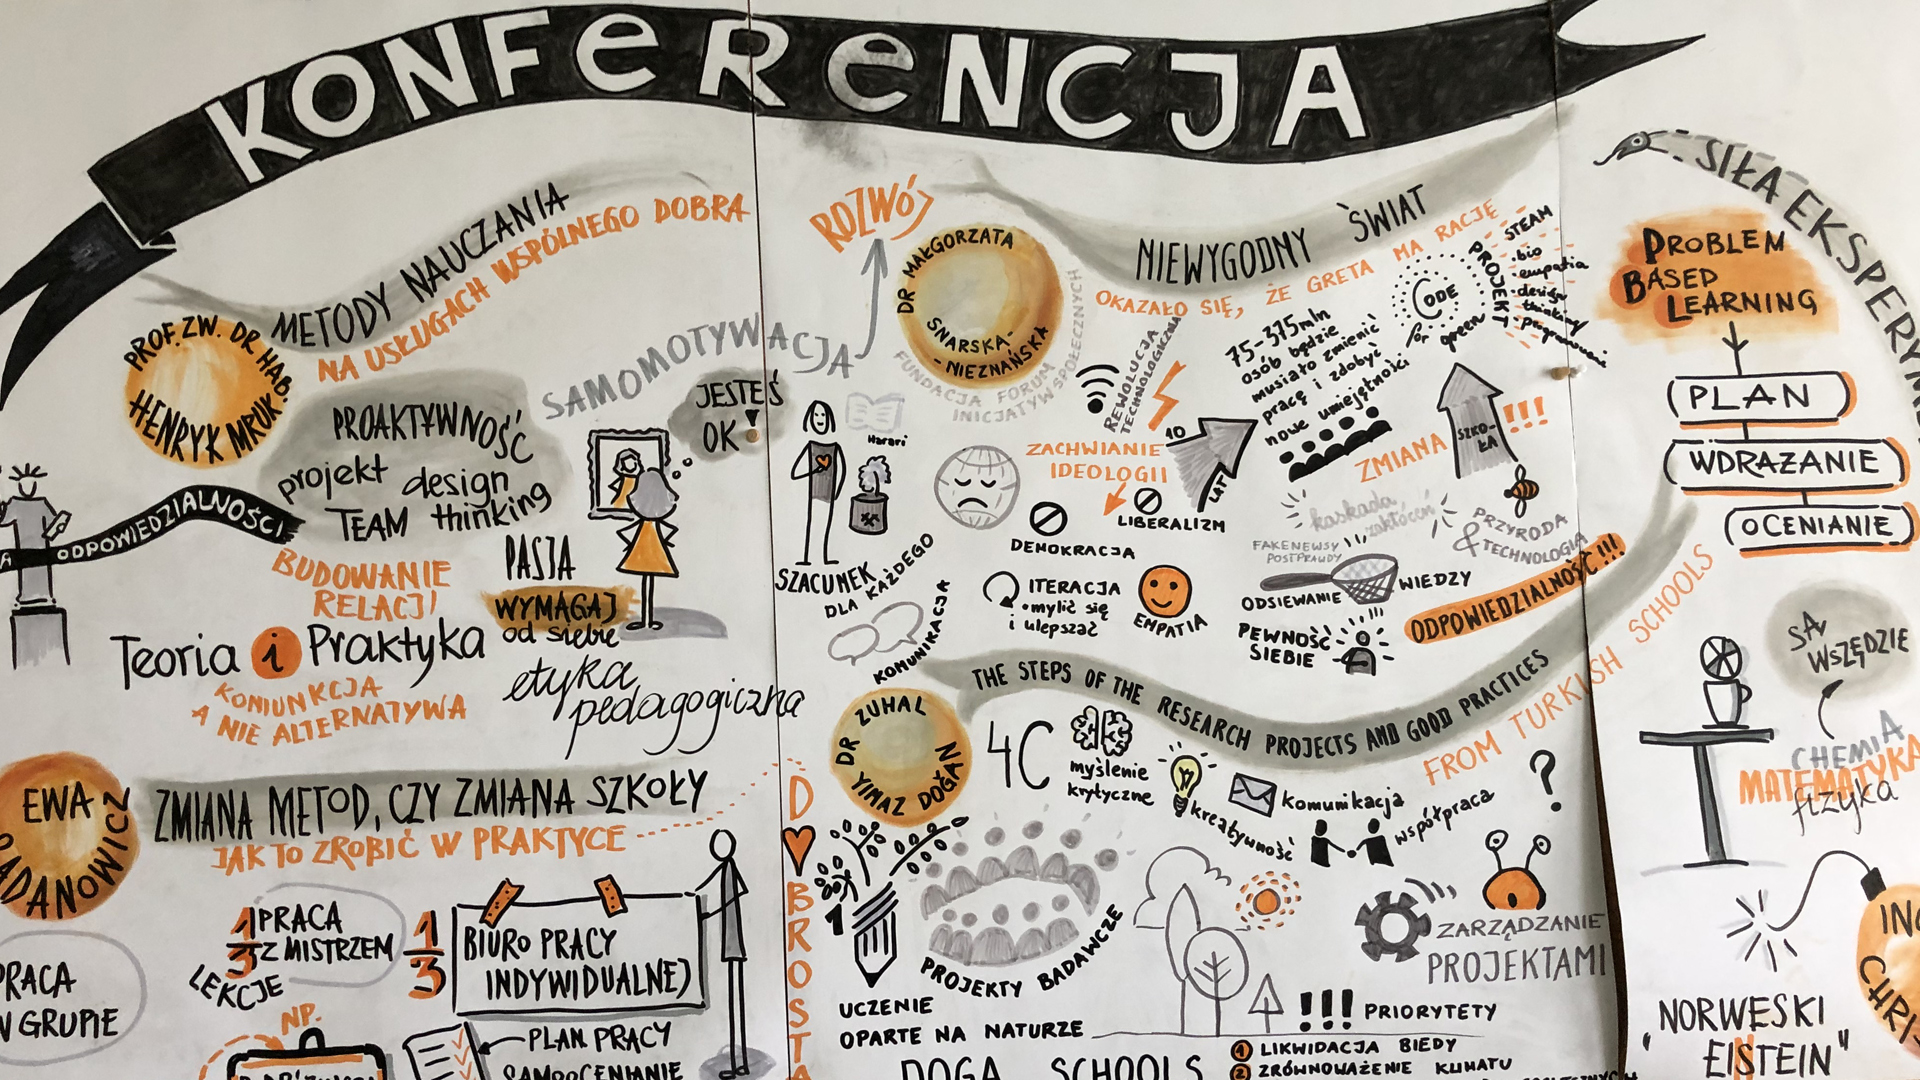 KONFERENCJA
METODY NAUCZANIA
NA USŁUGACH WSPÓLNEGO DOBRA
PROF. ZW. DR HAB.
HENRYK MRUK
PROAKTYWNOŚĆ
projekt
design
TEAM thinking
SAMOMOTYWACJA
ROZWÓJ
JESTEŚ
OK!
ODPOWIEDZIALNOŚCI
BUDOWANIE
RELACJI
PASJA
WYMAGAJ
od siebie
Teoria i Praktyka
KONIUNKCJA
A NIE ALTERNATYWA
etyka
pedagogiczna
DR MAŁGORZATA
SNARSKA-
-NIEZNAŃSKA
FUNDACJA FORUM
INICJATYW SPOŁECZNYCH
NIEWYGODNY ŚWIAT
OKAZAŁO SIĘ, ŻE GRETA MA RACJĘ
Harari
SZACUNEK
DLA KAŻDEGO
KOMUNIKACJA
REWOLUCJA
TECHNOLOGICZNA
ZACHWIANIE
IDEOLOGII
DEMOKRACJA
LIBERALIZM
10
LAT
75-375mln
osób będzie
musiało zmienić
pracę i zdobyć
nowe umiejętności
CODE
for green
PROJEKT
STEAM
• bio
• empatia
• design
thinking
• programowanie
ZMIANA
SZKO-
ŁA
!!!
kaskada
zakłóceń
PRZYRODA
& TECHNOLOGIA
FAKENEWSY
POSTPRAWDY
ODSIEWANIE
WIEDZY
ITERACJA
• mylić się
i ulepszać
EMPATIA
PEWNOŚĆ
SIEBIE
ODPOWIEDZIALNOŚĆ!!!
SIŁA EKSPERYM
PROBLEM
BASED
LEARNING
PLAN
WDRAŻANIE
OCENIANIE
SĄ
WSZĘDZIE
CHEMIA
MATEMATYKA
fizyka
NORWESKI
"EISTEIN"
ING
CHRIS
EWA
RADANOWICZ
ZMIANA METOD, CZY ZMIANA SZKOŁY
JAK TO ZROBIĆ W PRAKTYCE
DOBROSTA
PRACA
W GRUPIE
1/3 PRACA
Z MISTRZEM
LEKCJE
1/3
BIURO PRACY
INDYWIDUALNEJ
NP.
PLAN PRACY
SAMOOCENIANIE
DR ZUHAL
YIMAZ DOĞAN
THE STEPS OF THE RESEARCH PROJECTS AND GOOD PRACTICES
FROM TURKISH SCHOOLS
4C
myślenie
krytyczne
kreatywność
komunikacja
współpraca
?
1
UCZENIE
OPARTE NA NATURZE
PROJEKTY BADAWCZE
ZARZĄDZANIE
PROJEKTAMI
!!! PRIORYTETY
1 LIKWIDACJA BIEDY
2 ZRÓWNOWAŻENIE KLIMATU
DOGA SCHOOLS